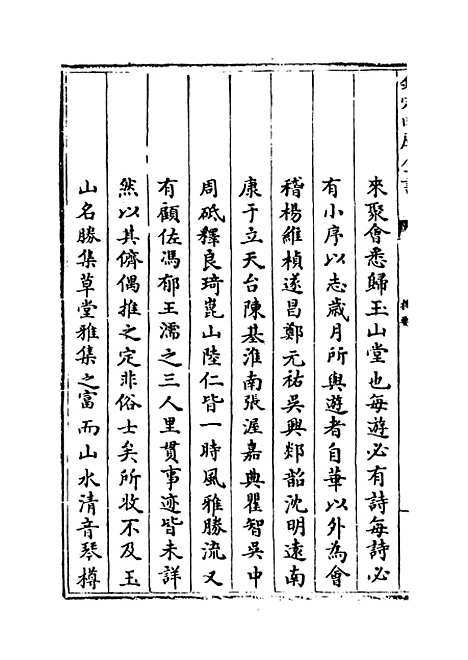 欽定四庫全書
提要
來聚會悉歸玉山堂也每遊必有詩每詩必
有小序以志歳月所與遊者自華以外為會
稽楊維楨遂昌鄭元祐吳興郯韶沈明遠南
康于立天台陳基淮南張渥嘉興瞿智吳中
周砥釋良琦崑山陸仁皆一時風雅勝流又
有顧佐馮郁王濡之三人里貫事迹皆未詳
然以其儕偶推之定非俗士矣所收不及玉
山名勝集草堂雅集之富而山水清音琴樽